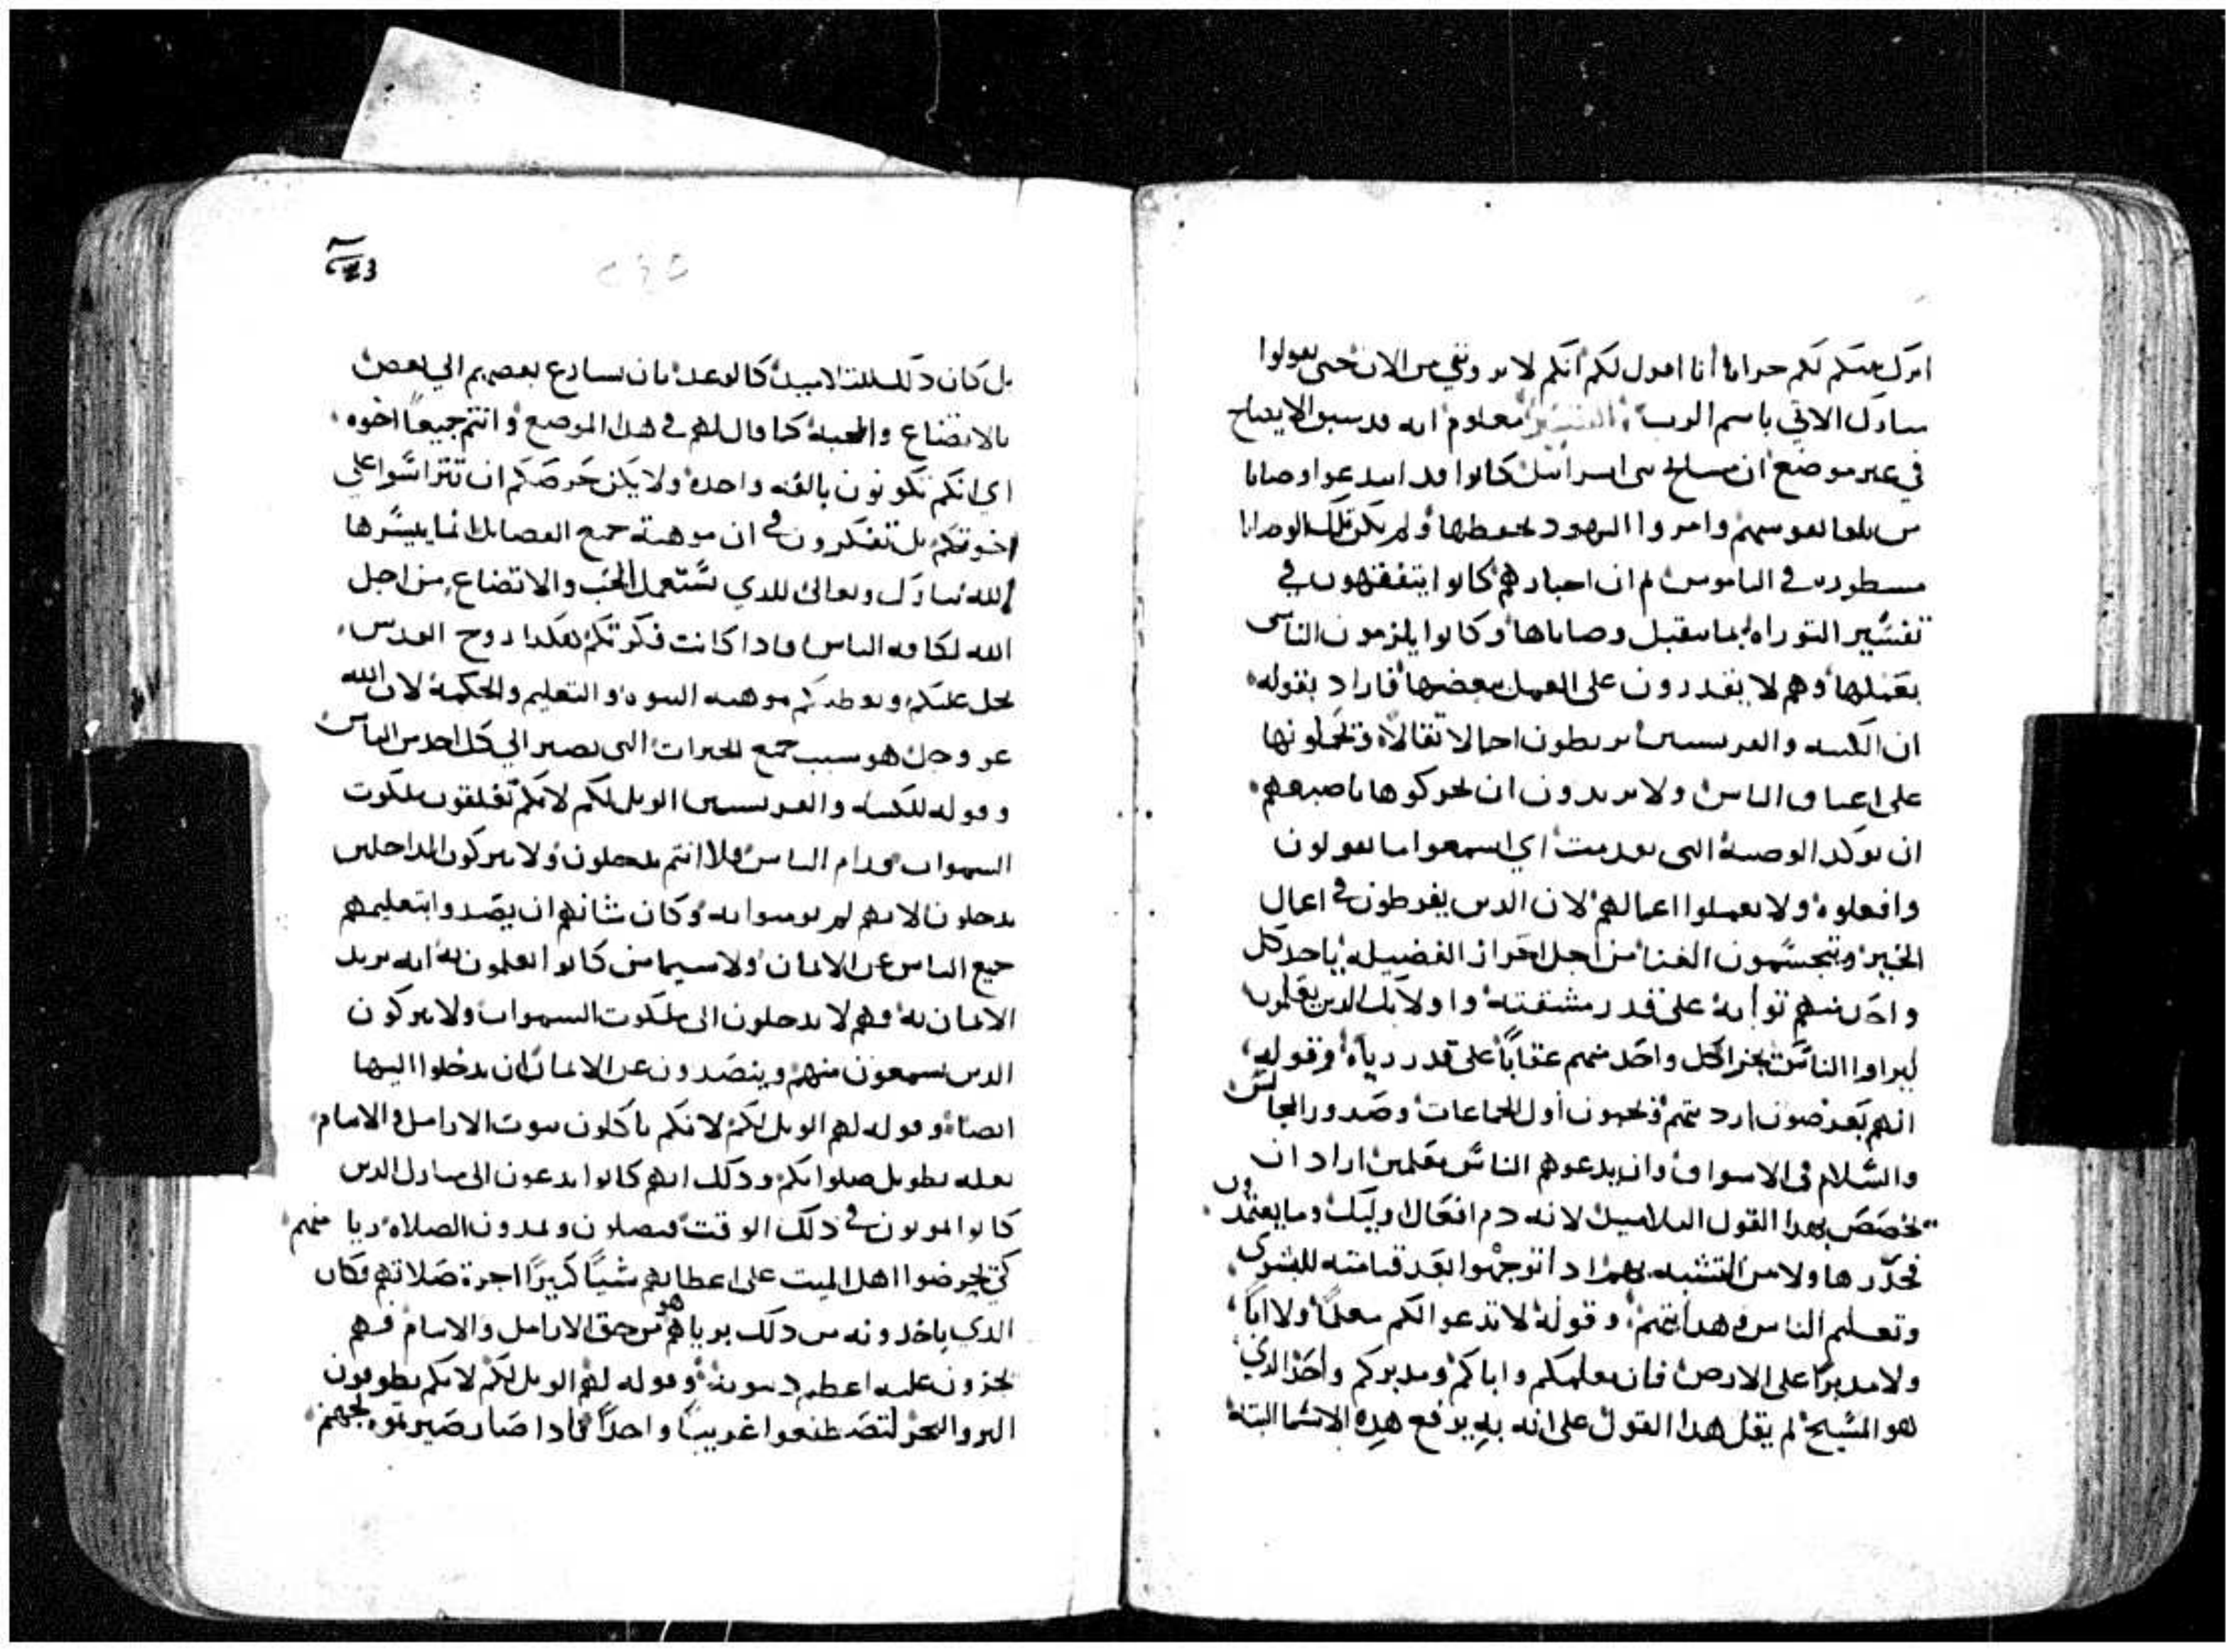 اترك بيتكم لكم خرابا أنا اقول لكم انكم لا تروني من الان حتى تقولوا
مبارك الاتي باسم الرب التفسير معلوم انه قد سبق الايضاح
في غير موضع ان مشايخ بني اسرائيل كانوا قد ابتدعوا وصايا
من تلقا نفوسهم وامروا اليهود بحفظها ولم يكن تلك الوصايا
مسطوره في الناموس ثم ان احبارهم كانوا يتفقهون في
تفسير التوراه وكانوا يلزمون الناس
بعملها وهم لا يقدرون على العمل ببعضها فاراد بقوله
ان الكتبه والفريسيين يربطون احمالا ثقالا ويحملونها
على اعناق الناس ولا يريدون ان يحركوها باصبعهم
ان يوكد الوصية التي تقدمت اي اسمعوا ما يقولون
وافعلوه ولا تعملوا اعمالهم لان الدين يفرطون في اعمال
الخير ويتجشمون العنا من اجل احراز الفضيله ياخد كل
واحد منهم ثوابه على قدر مشقته واولايك الدين يعلمون
ليراوا الناس يجزا كل واحد منهم عقابا على قدر ريآه وقوله
انهم يعرضون ارديتهم ويحبون أول الجماعات وصدور المجالس
والسلام في الاسواق وان يدعوهم الناس معلمين اراد ان
يخصص بهدا القول التلاميد لانه دم افعال اوليك وما يعتمدون
فحدرها ولا من التشبه بهم ادا توجهوا بعد قيامته للبشرى
وتعليم الناس وهدايتهم وقوله لا تدعوا لكم معلما ولا ابا
ولا مدبرا على الارض فان معلمكم واباكم ومدبركم واحد الدي
هو المسيح لم يقل هدا القول على انه به يرفع هده الاسما البتة
بل كان دلك للتلاميد كالوعد بان يسارع بعضهم الي بعض
بالاتضاع والمحبة كما قال لهم في هدا الموضع وانتم جميعا اخوه
اي انكم تكونون بالفه واحدة ولا يكن حرصكم ان تتراسوا على
اخوتكم بل تفكرون في ان موهبة جميع الفضايل انما ييسرها
الله تبارك وتعالى للدي يستعمل الحب والاتضاع من اجل
الله لكافه الناس فادا كانت فكرتكم هكدا روح القدس
يحل عليكم ويعطيكم موهبه النبوه والتعليم والحكمة لان الله
عز وجل هو سبب جميع الخيرات التي تصير الي كل احد من الناس
وقوله للكتبه والفريسيين الويل لكم لانكم تغلقون ملكوت
السموات قدام الناس فلا انتم تدخلون ولا تتركون الداخلين
يدخلون لانهم لم يومنوا به وكان شانهم ان يصدوا بتعليمهم
جميع الناس عن الايمان ولا سيما من كانوا يعلمون انه يريد
الايمان به فهم لا يدخلون الى ملكوت السموات ولا يتركون
الدين يسمعون منهم ويتصدون عن الايمان ان يدخلوا اليها
ايضا وقوله لهم الويل لكم لانكم تاكلون بيوت الارامل والايتام
بعله تطويل صلواتكم ودلك انهم كانوا يدعون الى منازل الدين
كانوا يموتون في دلك الوقت فيصلون ويمدون الصلاه ريا منهم
كي يحرضوا اهل الميت على اعطايهم شيا كثيرا اجرة صلاتهم فكان
الدي ياخدونه من دلك برياهم هو من حق الارامل والايتام فهم
يجزون عليه اعظم دينونة وقوله لهم الويل لكم لانكم تطوفون
البر والبحر لتصطنعوا غريبا واحدا فادا صار صيرتموه لجهنم